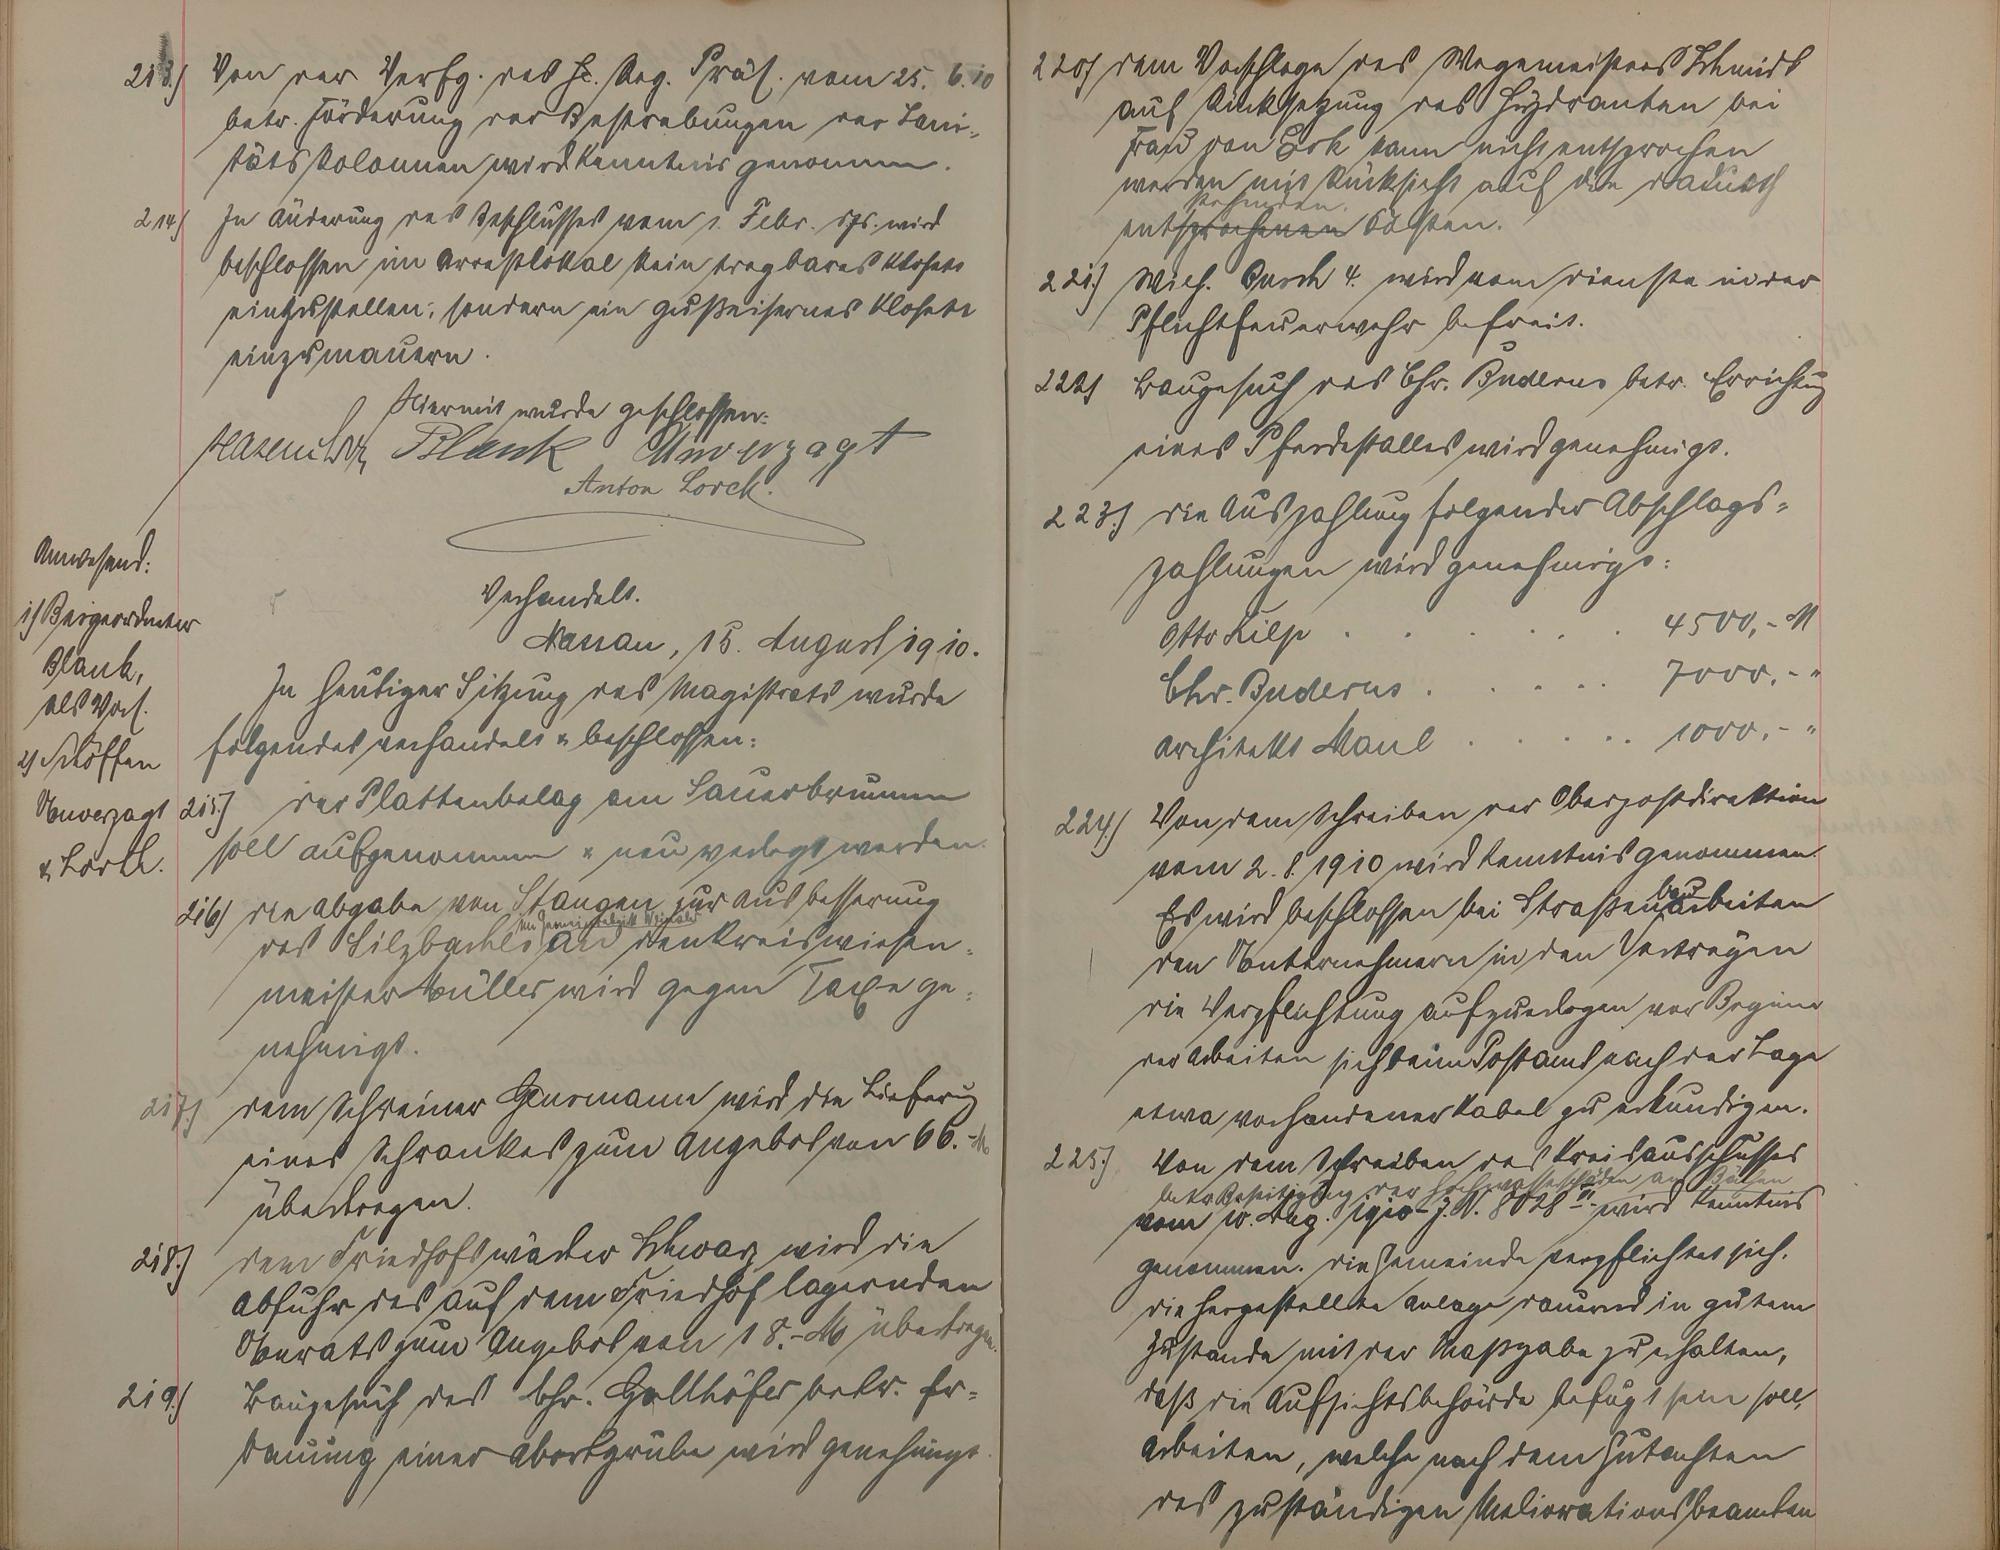 213.) Von der Verfg. des H. Reg. Präs. vom 25. 6. 10
betr. Förderung der Bestrebungen der Sani-
tätskolonnen wird Kenntnis genommen.
214.) In Änderung des Beschlusses vom 1. Febr. ds. Js. wird
beschlossen im Arrestlokal kein tragbares Klosett
einzustellen, sondern ein gußeisernes Klosett
einzumauern.
Hiermit wurde geschlossen:
Hasenclever Blank Unverzagt
Anton Lorch.
Anwesend:
1) Beigeordneter
Blank,
als Vors.
2) Schöffen
Unverzagt
& Lorch.
Verhandelt.
Nassau, 15. August 1910.
In heutiger Sitzung des Magistrats wurde
folgendes verhandelt & beschlossen:
215.) Der Plattenbelag am Sauerbrunnen
soll aufgenommen & neu verlegt werden.
216.) Die Abgabe von Stangen zur Ausbesserung
des Silzbaches an den Kreiswiesen-
meister Müller wird gegen Taxe ge-
nehmigt.
217.) Dem Schreiner Geusmann wird die Lieferung
eines Schrankes zum Angebot von 66.- M
übertragen.
218.) Dem Friedhofswärter Schwarz wird die
Abfuhr des auf dem Friedhof lagernden
Unrats zum Angebot von 18.- M übertragen.
219.) Baugesuch des Chr. Gallhöfer betr. Er-
bauung einer Abortgrube wird genehmigt.
220.) Dem Vorschlage des Wegemeisters Schmidt
auf Rücksetzung des Hydranten bei
Frau von Eck kann nicht entsprochen
werden mit Rücksicht auf die dadurch
stehenden
entsprochenen Kosten.
221.) Wilh. Busch 4. wird vom Dienste in der
Pflichtfeuerwehr befreit.
222.) Baugesuch des Chr. Buderus betr. Errichtung
eines Pferdestalles wird genehmigt.
223.) Die Auszahlung folgender Abschlags-
zahlungen wird genehmigt:
Otto Kilp . . . . . . 4500,- M
Chr. Buderus . . . . . 7000.- "
Architekt Maul . . . . . 1000.- "
224.) Von dem Schreiben der Oberpostdirektion
vom 2. 8. 1910 wird Kenntnis genommen.
Es wird beschlossen bei Straßenbauarbeiten
den Unternehmern in den Verträgen
die Verpflichtung aufzuerlegen vor Beginn
der Arbeiten sich beim Postamt nach der Lage
etwa vorhandener Kabel zu erkundigen.
225.) Von dem Schreiben des Kreisausschusses
betr. Beseitigung der Hochwasserschäden an Bächen
vom 10. Aug. 1910 J. N. 8028 II. wird Kenntnis
genommen. Die Gemeinde verpflichtet sich,
die hergestellte Anlage dauernd in gutem
Zustande mit der Maßgabe zu erhalten,
daß die Aufsichtsbehörde befugt sein soll,
Arbeiten, welche nach dem Gutachten
des zuständigen Meliorationsbeamten